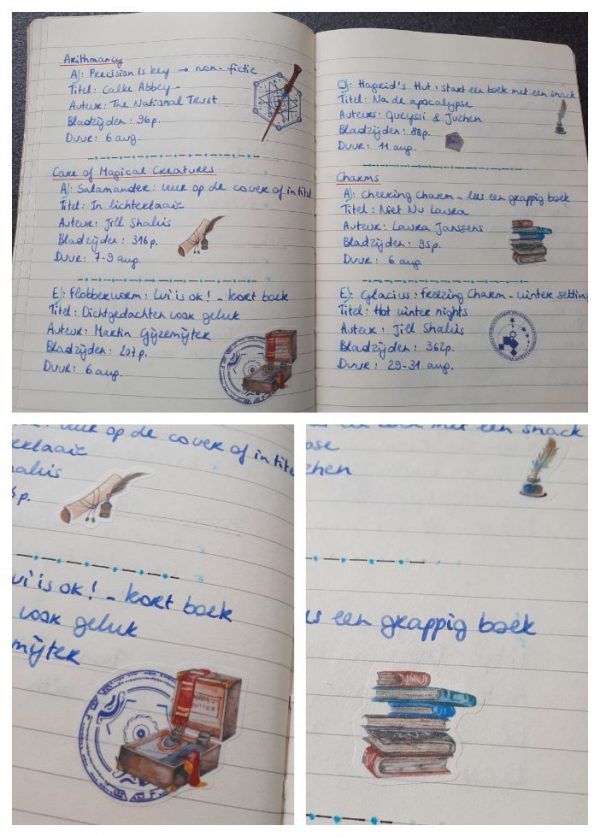 Arithmancy
A): Precision is key → non-fictie
Titel: Calke Abbey
Auteur: The National Trust
Bladzijden: 96p.
Duur: 6 aug.
Care of Magical Creatures
A): Salamander: vuur op de cover of in titel
Titel: In lichterlaaie
Auteur: Jill Shalvis
Bladzijden: 316p.
Duur: 7-9 aug.
E): Flobberworm: Lui is ok! - kort boek
Titel: Dichtgedachten voor geluk
Auteur: Martin Gijzemijter
Bladzijden: 207p.
Duur: 6 aug.
Hagrid's Hut: start een boek met een snack
Titel: Na de apocalypse
Auteurs: Gueyssi & Juchen
Bladzijden: 88p.
Duur: 11 aug.
Charms
A): Cheering Charm - lees een grappig boek
Titel: Niet Nu Laura
Auteur: Laura Janssens
Bladzijden: 95p.
Duur: 6 aug.
E): Glacius: Freezing Charm - winter setting
Titel: Hot winter nights
Auteur: Jill Shalvis
Bladzijden: 362p.
Duur: 29-31 aug.
vuur op de cover of in titel
erlaaie
halvis
6p.
ui is ok! - kort boek
voor geluk
emijter
met een snack
pse
chen
es een grappig boek